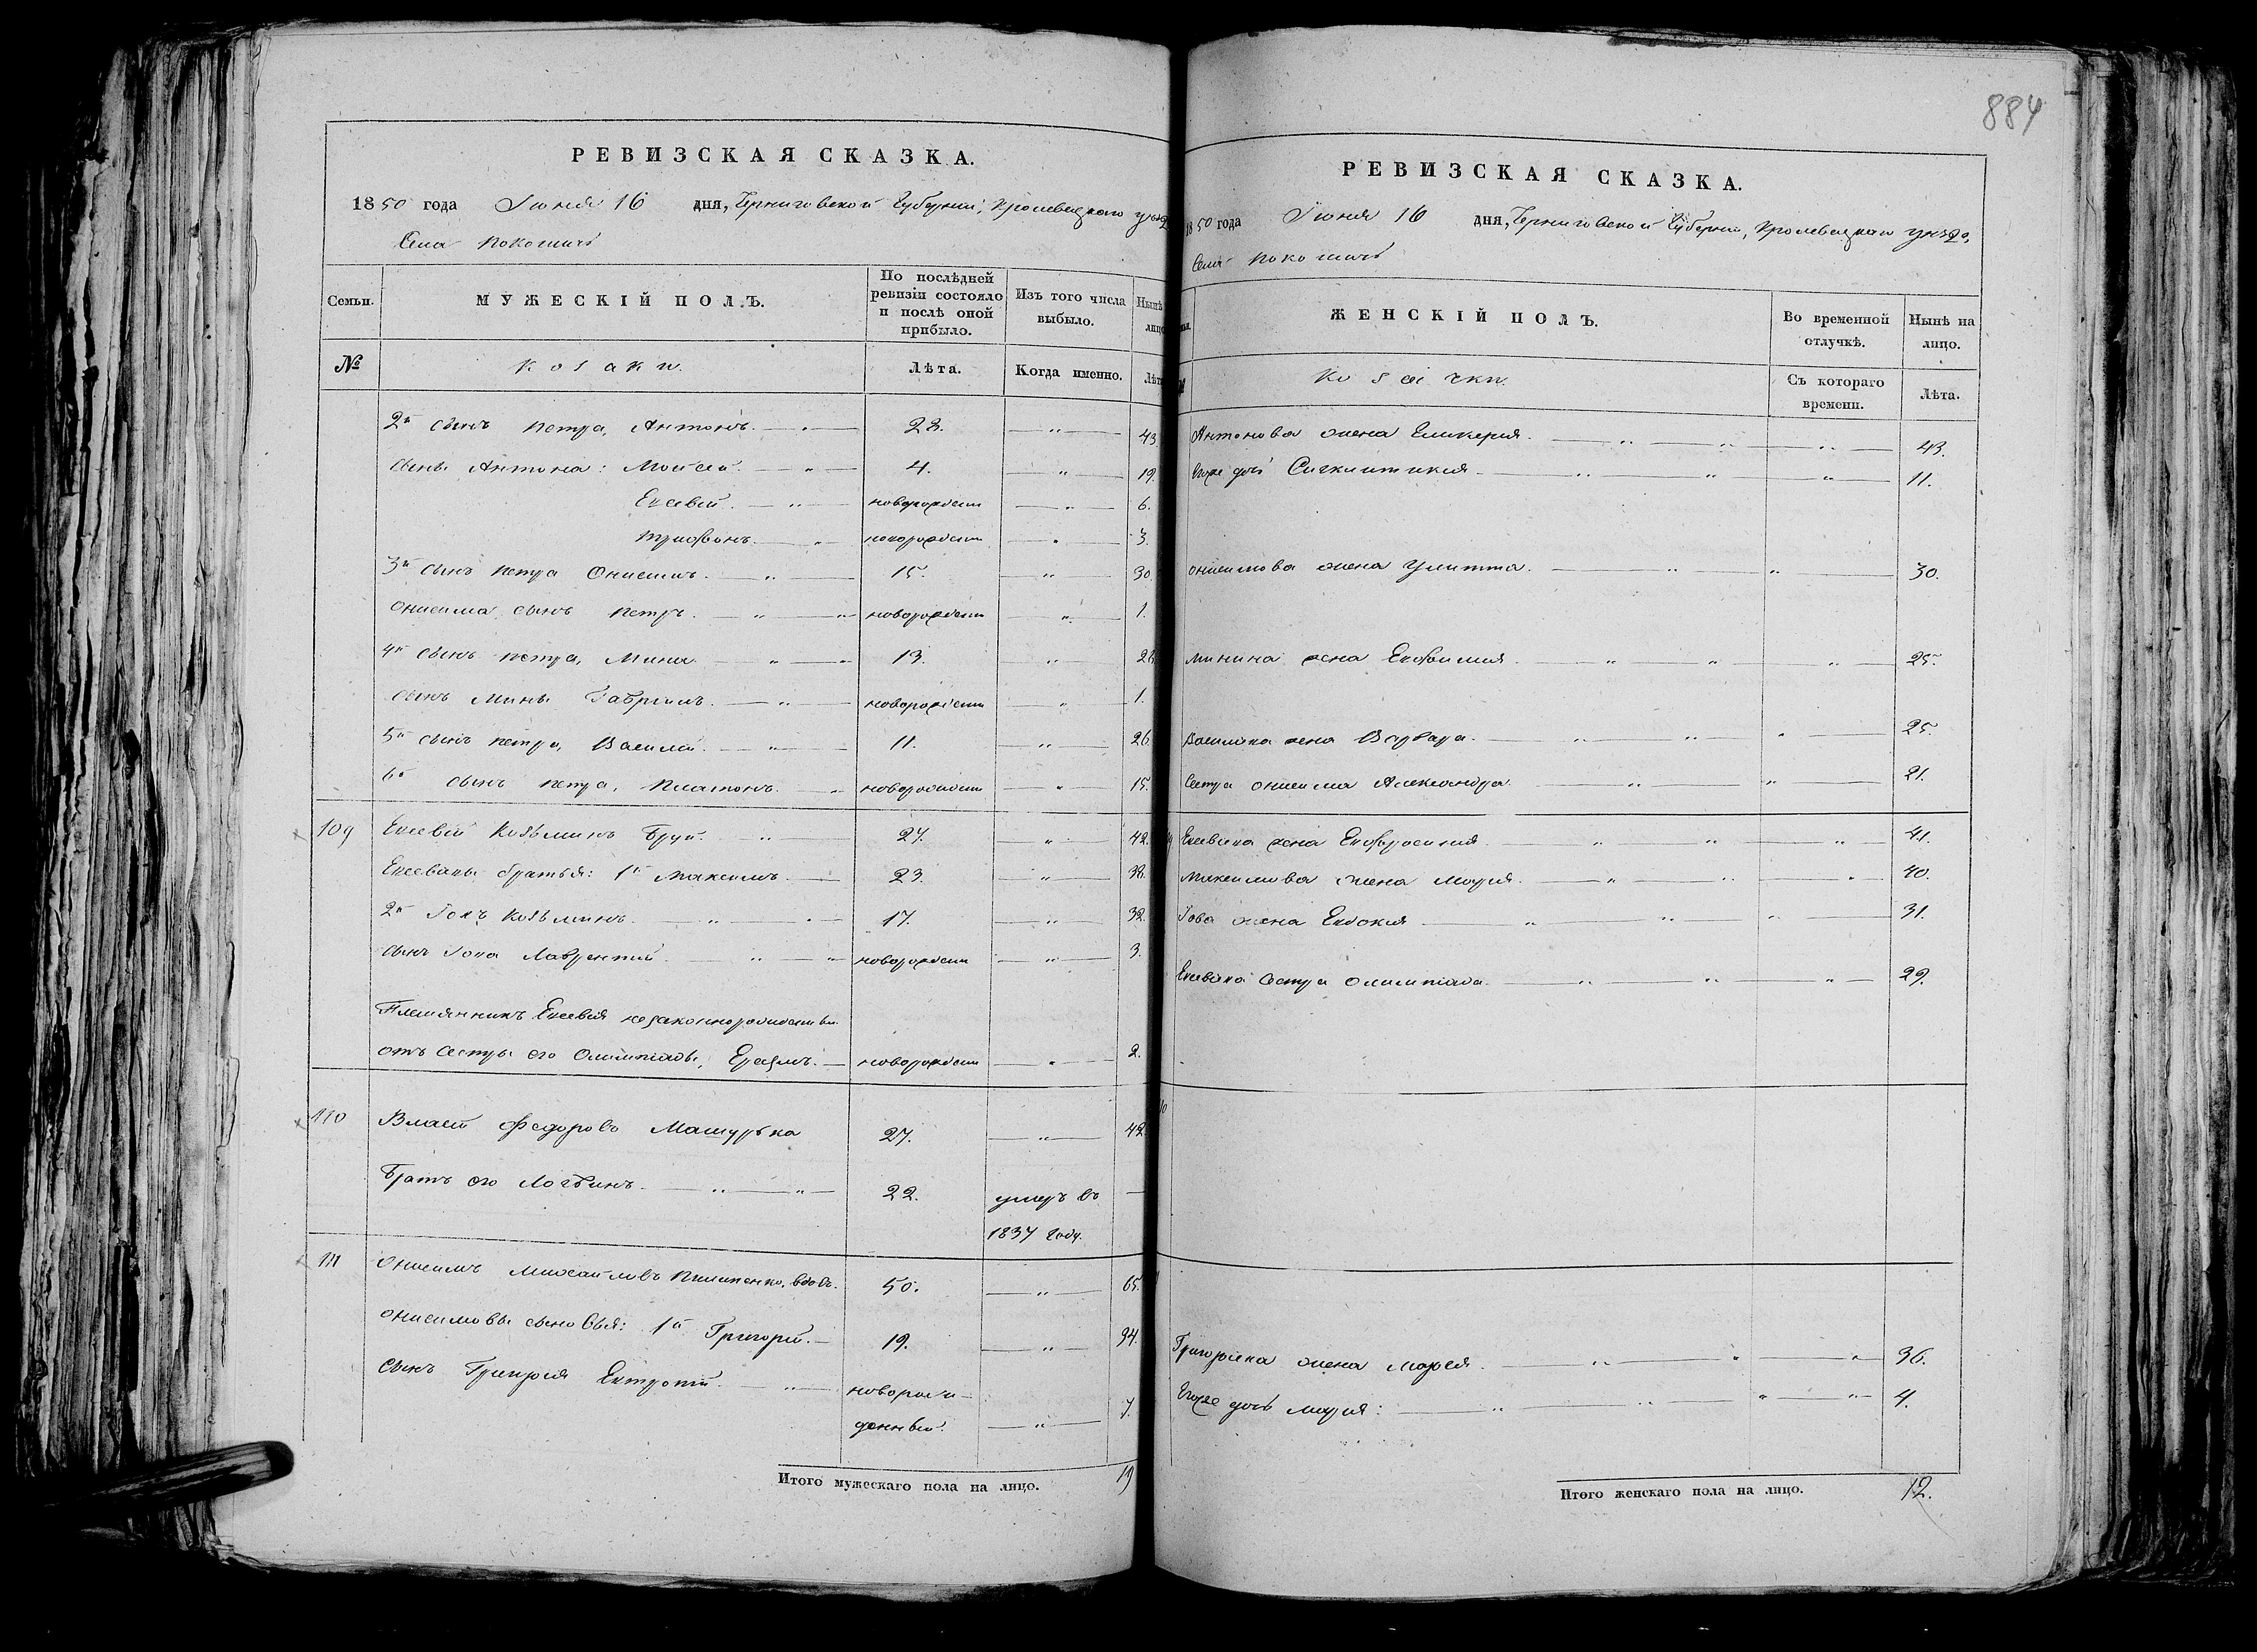 РЕВИЗСКАЯ СКАЗКА.
1850 года Іюня 16 дня, Черниговской Губерніи, Кролевецкаго уезда
Села Покошичъ
Семьи.
МУЖЕСКІЙ ПОЛЪ.
По послѣдней ревизіи состояло и послѣ оной прибыло.
Изъ того числа выбыло.
Нынѣ лицо
№
Козаки.
Лѣта.
Когда именно.
Лѣта
2й сынъ Петра, Антонъ. 28. 43.
Сыны Антона: Моисей. 4. 19.
Евсевій. новорожден 6.
Трифонъ. новорожден 3.
3й сынъ Петра Онисимъ. 15. 30.
Онисима сынъ Петръ. новорожден 1.
4й сынъ Петра, Мина. 13. 28
сынъ Мины Гавріилъ. новорожден 1.
5й сынъ Петра, Василій. 11. 26
6й сынъ Петра, Платонъ. новорожден 15.
109 Евсевій Козьминъ Бруй. 27. 42.
Евсевія братья: 1й Максимъ. 23. 38.
2й Іовъ Козьминъ. 17. 32.
сынъ Іова Лаврентій. новорожден 3.
Племянникъ Евсевія незаконнорожденный
отъ сестры его Олимпіады, Еразмъ. новорожден 2.
110 Власій Федоровъ Мащурька 27. 42
Братъ его Логвинъ. 22. умеръ въ
1837 году.
111 Онисимъ Михайловъ Пилипенко, вдовъ. 50. 65.
Онисимовы сыновья: 1й Григорій. 19. 34.
Сынъ Григорія Евтропій. новорож
денный. 7.
Итого мужескаго пола на лицо. 19
884
РЕВИЗСКАЯ СКАЗКА.
1850 года Іюня 16 дня, Черниговской Губерніи, Кролевецкаго уезда,
Села Покошичъ
ЖЕНСКІЙ ПОЛЪ.
Во временной отлучкѣ.
Нынѣ на лицо.
Козачки.
Съ котораго времени.
Лѣта.
Антонова жена Гликерія. 43.
Ихже дочь Синклитикія 11.
Онисимова жена Улитта. 30.
Минина жена Евфимия. 25.
Василіева жена Варвара. 25.
Сестра Онисима Александра. 21.
Евсевіева жена Евфросинія 41.
Максимова жена Марія. 40.
Іова жена Евдокія 31.
Евсевіева сестра Олимпіада. 29.
Григоріева жена Марфа. 36.
Ихже дочь Марія: 4.
Итого женскаго пола на лицо. 12.